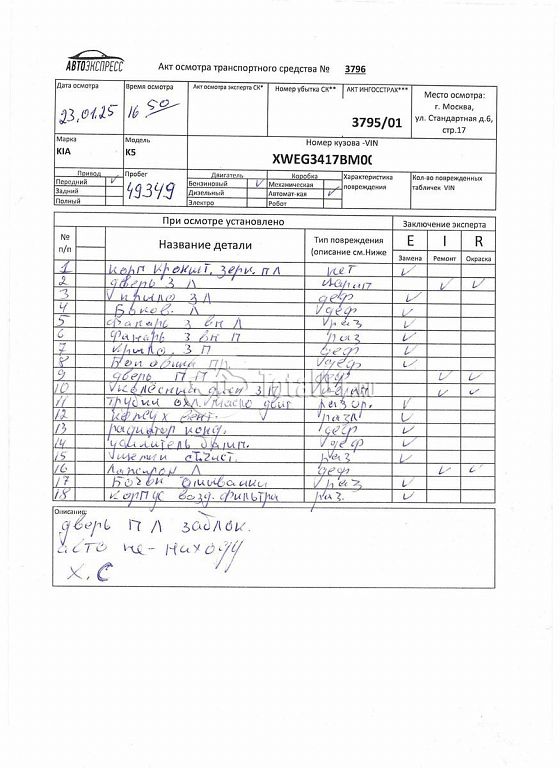 АВТОЭКСПРЕСС
Акт осмотра транспортного средства № 3796
Дата осмотра Время осмотра Акт осмотра эксперта СК* Номер убытка СК** АКТ ИНГОССТРАХ*** Место осмотра:
г. Москва,
ул. Стандартная д.6,
стр.17
23.01.25 16 50 3795/01
Марка Модель Номер кузова -VIN
KIA K5 XWEG3417BM00
Привод Пробег Двигатель Коробка Характеристика повреждения Кол-во поврежденных табличек VIN
Передний ✓ 49349 Бензиновый ✓ Механическая
Задний Дизельный Автомат-кая ✓
Полный Электро Робот
При осмотре установлено Заключение эксперта
№ п/п Название детали Тип повреждения (описание см.Ниже E I R
Замена Ремонт Окраска
1 корп кроншт. зерк. ПЛ ✓
2 дверь З Л ✓ ✓
3 крыло З Л деф ✓
4 деф ✓
5 фонарь З вн Л раз ✓
6 фонарь З вн П раз ✓
7 крыло З П деф ✓
8 деф ✓
9 дверь П П деф ✓ ✓
10 колесный диск З П ✓ ✓
11 трубки охл. масло двиг ✓
12 кожух вент. разл ✓
13 радиатор конд. деф ✓
14 усилитель бамп. деф ✓
15 раз ✓
16 Л деф ✓ ✓
17 Бочки омывайки раз ✓
18 корпус возд. фильтра раз. ✓
Описание:
дверь П Л заблок.
авто не-находу
Х.С